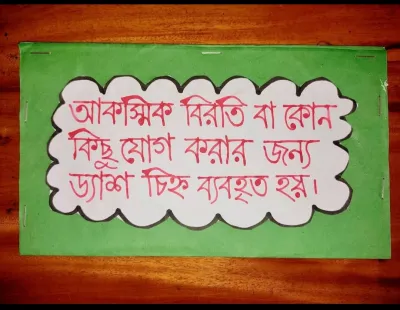 আকস্মিক বিরতি বা কোন
কিছু যোগ করার জন্য
ড্যাশ চিহ্ন ব্যবহৃত হয়।